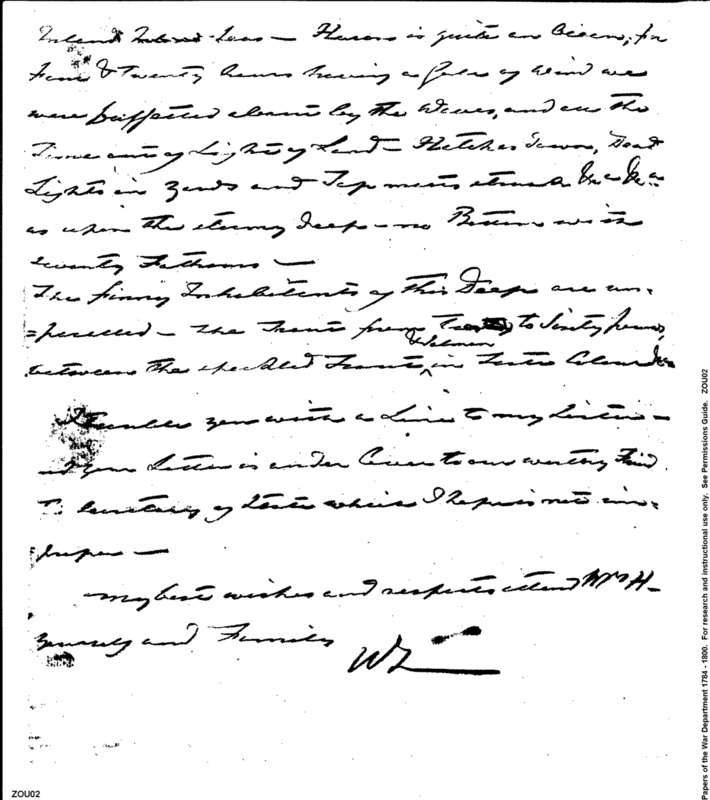 Inland Inland Seas — Huron is quite an Ocean, for
Four & Twenty hours having a Gale of Wind we
were buffetted about by the Waves, and all the
Time out of Sight of Land — Hatches down, Dead
Lights in Yards and Top masts struck &c &c
as upon the stormy deep — no Bottom with
seventy Fathoms —
The finny Inhabitants of this Deep are un=
=parelled — the Trout from to Sixty
& Salmon
between the speckled Trout in Taste Colour &c
I trouble you with a Line to my Sister —
and your Letter is under Cover to our worthy Friend
Secretary of State which I hope is not im=
proper —
my best wishes and respects attend Mrs H—
yourself and Family
WL
ZOU02
Papers of the War Department 1784 - 1800. For research and instructional use only. See Permissions Guide. ZOU02